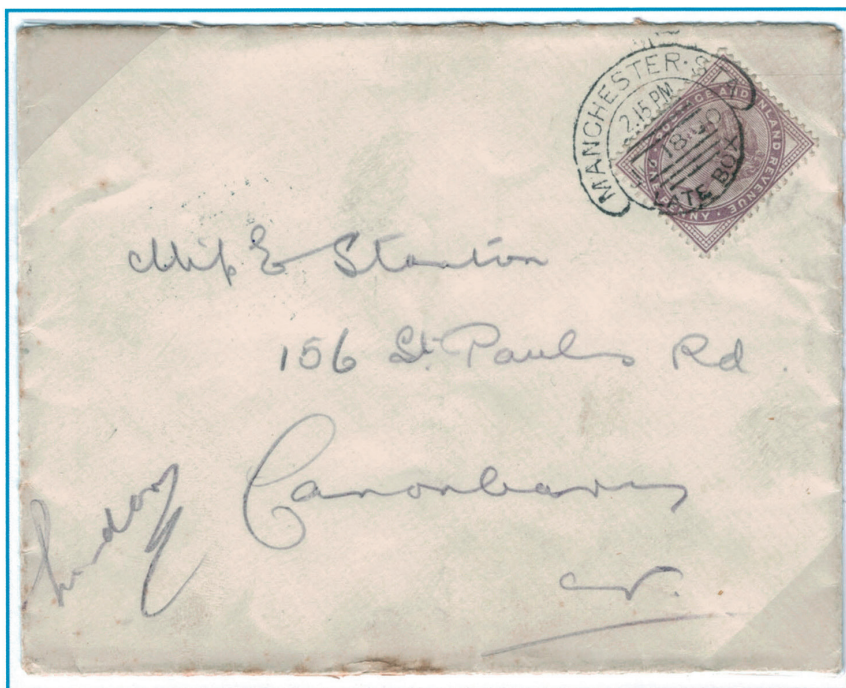 MANCHESTER·S
2.15 PM
18
LATE BOX
POSTAGE AND INLAND REVENUE
Miss E Stanton
156 St. Pauls Rd
Canonbury
N.
London